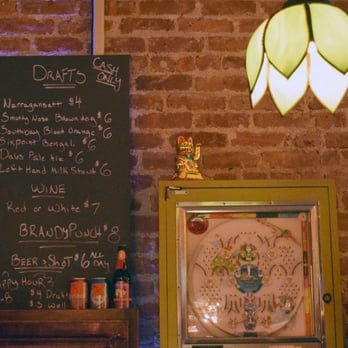 DRAFTS
CASH ONLY
Narragansett $4
Smutty Nose Brown dog $6
Southern Blood Orange $6
Sixpoint Bengal $6
Dales Pale Ale $6
Left Hand Milk Stout $6
WINE
Red or White $7
BRANDY PUNCH $8
BEER & SHOT $6 ALL DAY
Happy Hour
-8 $4 Drafts
$3 Well